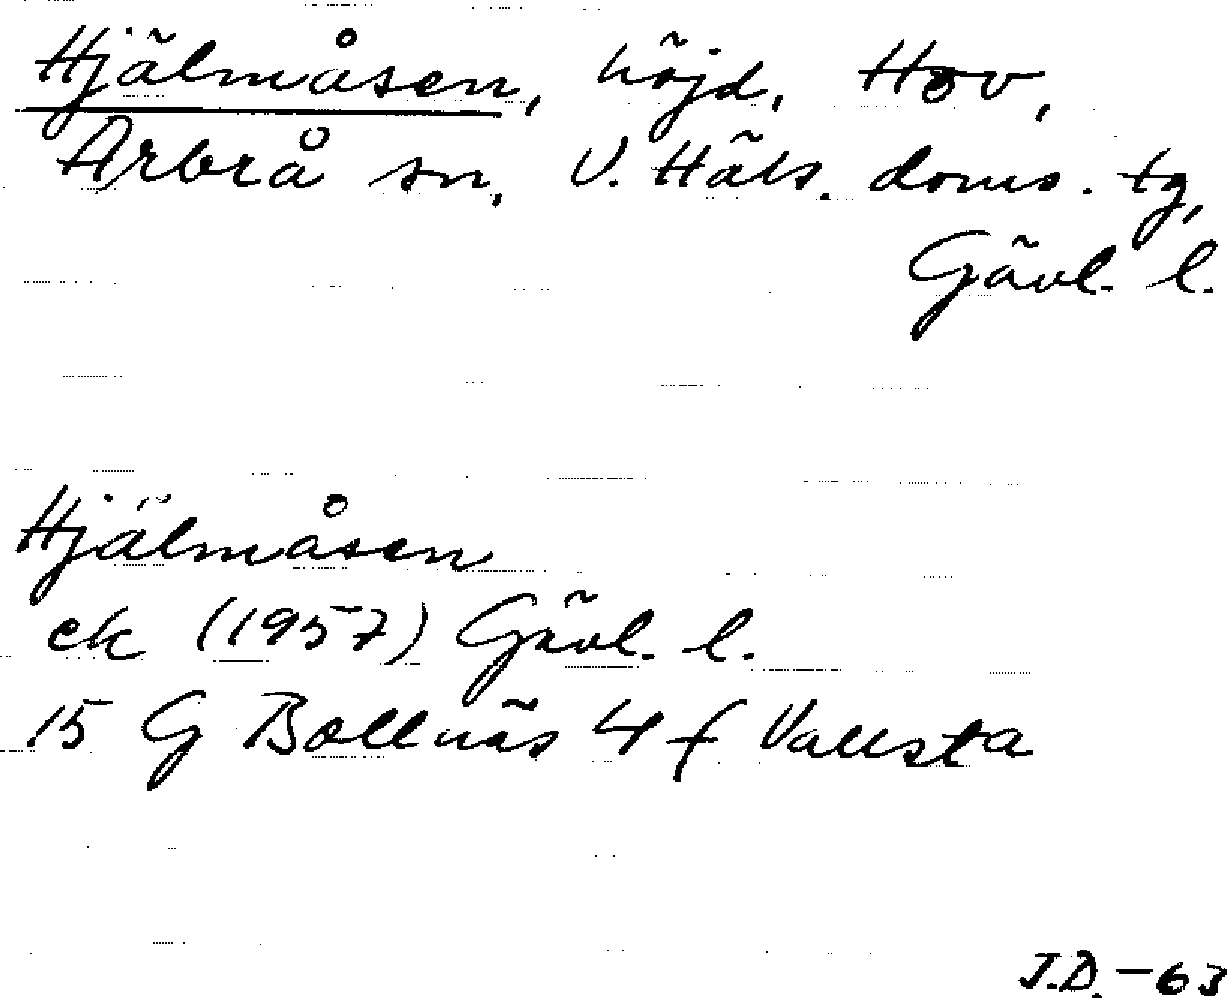 Hjälmåsen, höjd, Hov,
Arbrå sn, V. Häls. doms. tg,
Gävl. l.
Hjälmåsen
ek (1957) Gävl. l.
15 G Bollnäs 4 f Vallsta
J.D. - 63